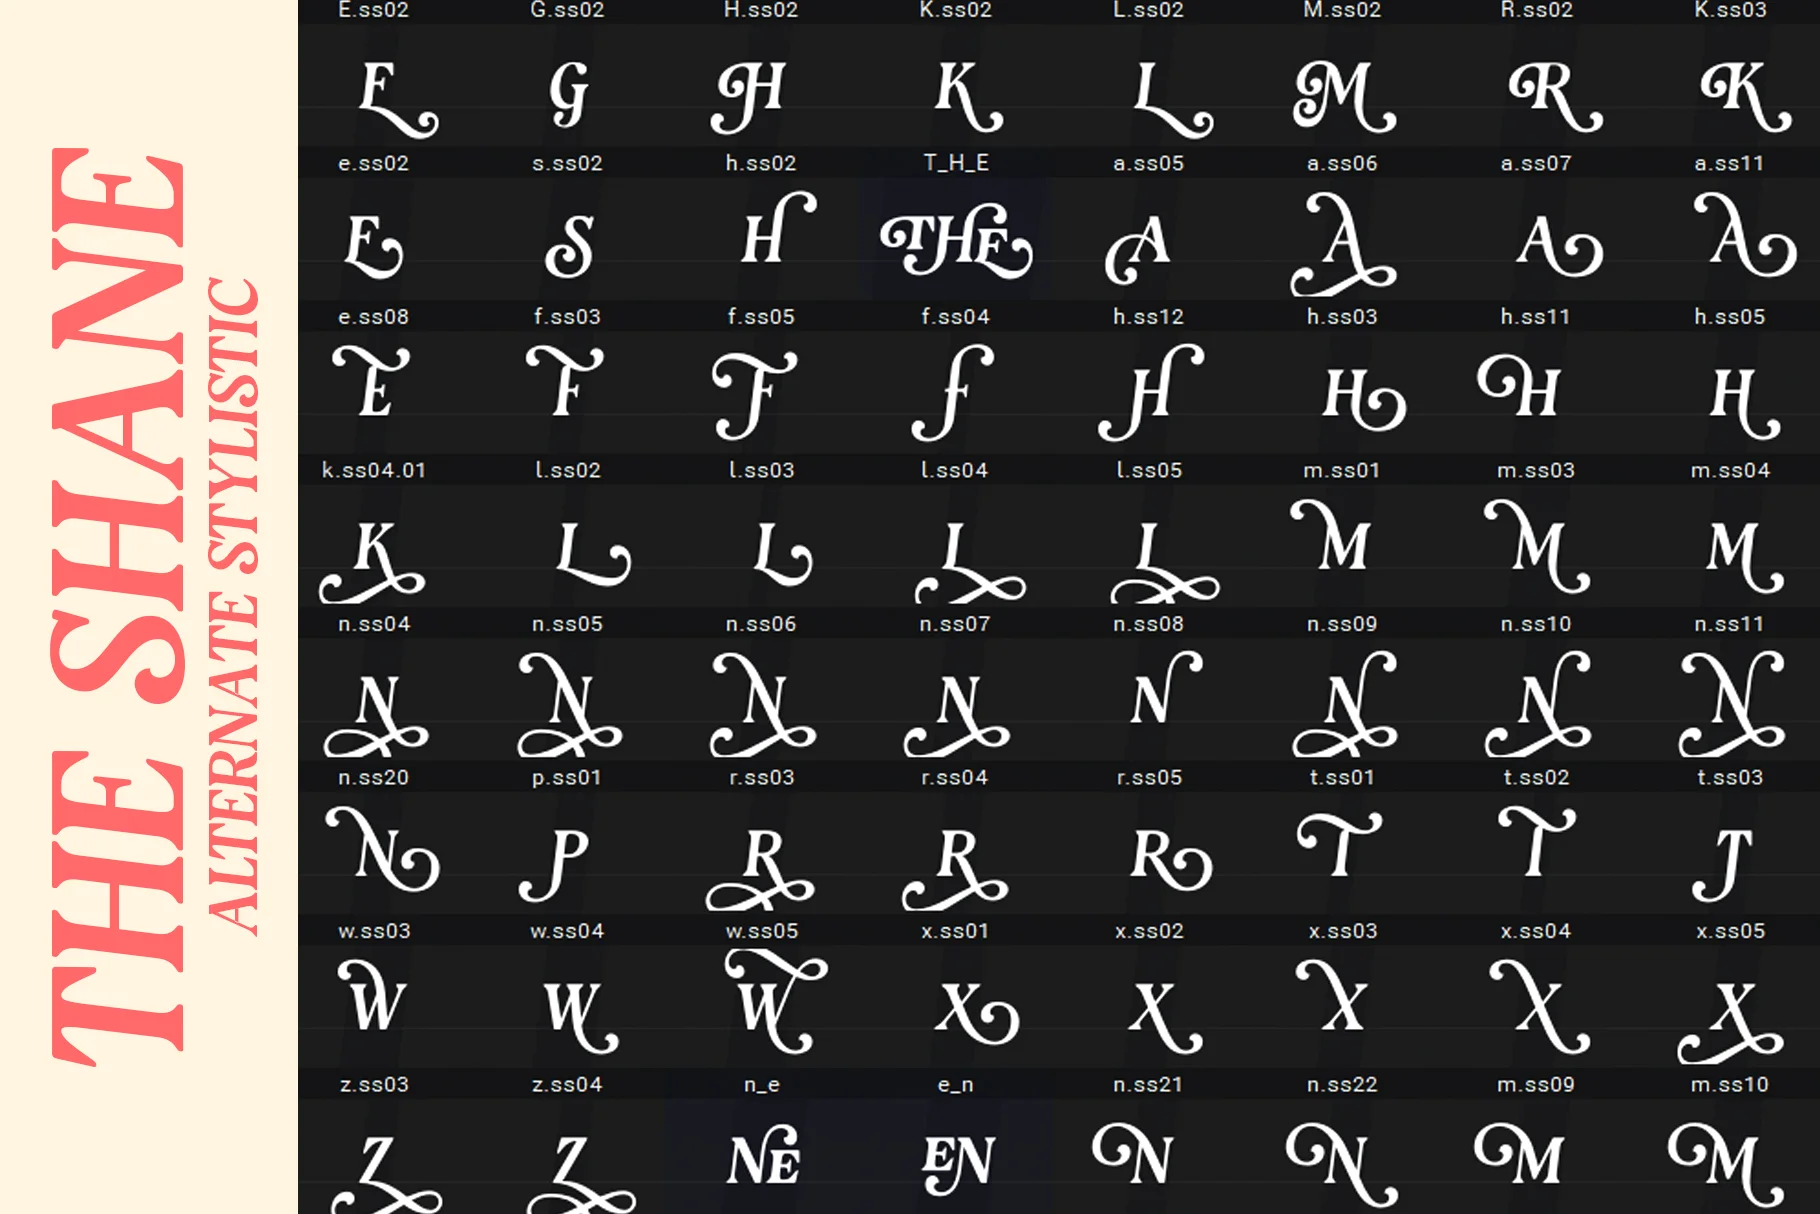 THE SHANE
ALTERNATE STYLISTIC
E.ss02 G.ss02 H.ss02 K.ss02 L.ss02 M.ss02 R.ss02 K.ss03
E G H K L M R K
e.ss02 s.ss02 h.ss02 T_H_E a.ss05 a.ss06 a.ss07 a.ss11
E S H THE A A A A
e.ss08 f.ss03 f.ss05 f.ss04 h.ss12 h.ss03 h.ss11 h.ss05
E F F f H H H H
k.ss04.01 l.ss02 l.ss03 l.ss04 l.ss05 m.ss01 m.ss03 m.ss04
K L L L L M M M
n.ss04 n.ss05 n.ss06 n.ss07 n.ss08 n.ss09 n.ss10 n.ss11
N N N N N N N N
n.ss20 p.ss01 r.ss03 r.ss04 r.ss05 t.ss01 t.ss02 t.ss03
N P R R R T T T
w.ss03 w.ss04 w.ss05 x.ss01 x.ss02 x.ss03 x.ss04 x.ss05
W W W X X X X X
z.ss03 z.ss04 n_e e_n n.ss21 n.ss22 m.ss09 m.ss10
Z Z NE EN N N M M